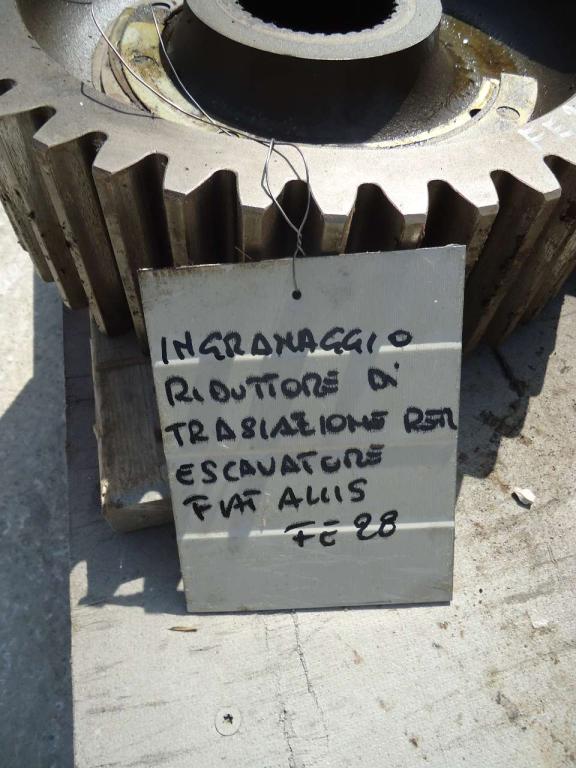 INGRANAGGIO
RIDUTTORE DI
TRASLAZIONE PER
ESCAVATORE
FIAT ALLIS
FE 28